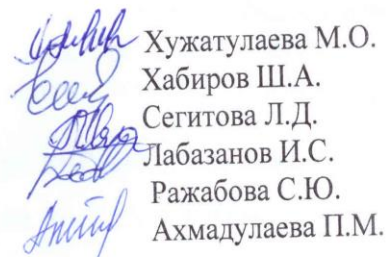 Хужатулаева М.О.
Хабиров Ш.А.
Сегитова Л.Д.
Лабазанов И.С.
Ражабова С.Ю.
Ахмадулаева П.М.